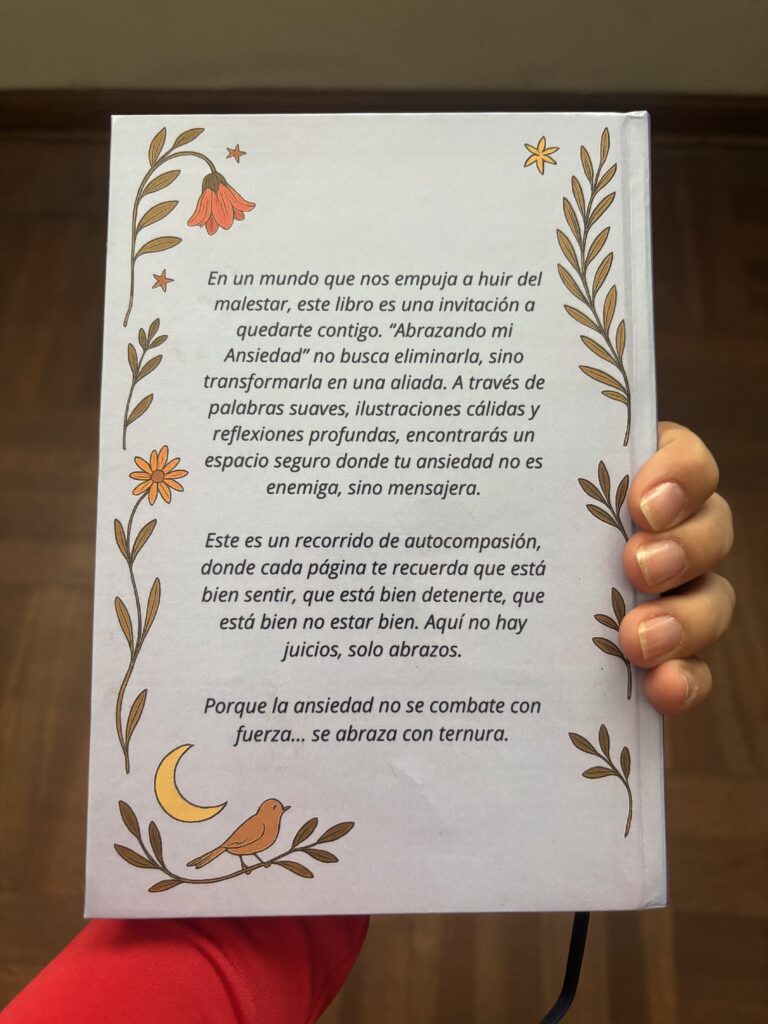 En un mundo que nos empuja a huir del
malestar, este libro es una invitación a
quedarte contigo. “Abrazando mi
Ansiedad” no busca eliminarla, sino
transformarla en una aliada. A través de
palabras suaves, ilustraciones cálidas y
reflexiones profundas, encontrarás un
espacio seguro donde tu ansiedad no es
enemiga, sino mensajera.
Este es un recorrido de autocompasión,
donde cada página te recuerda que está
bien sentir, que está bien detenerte, que
está bien no estar bien. Aquí no hay
juicios, solo abrazos.
Porque la ansiedad no se combate con
fuerza... se abraza con ternura.